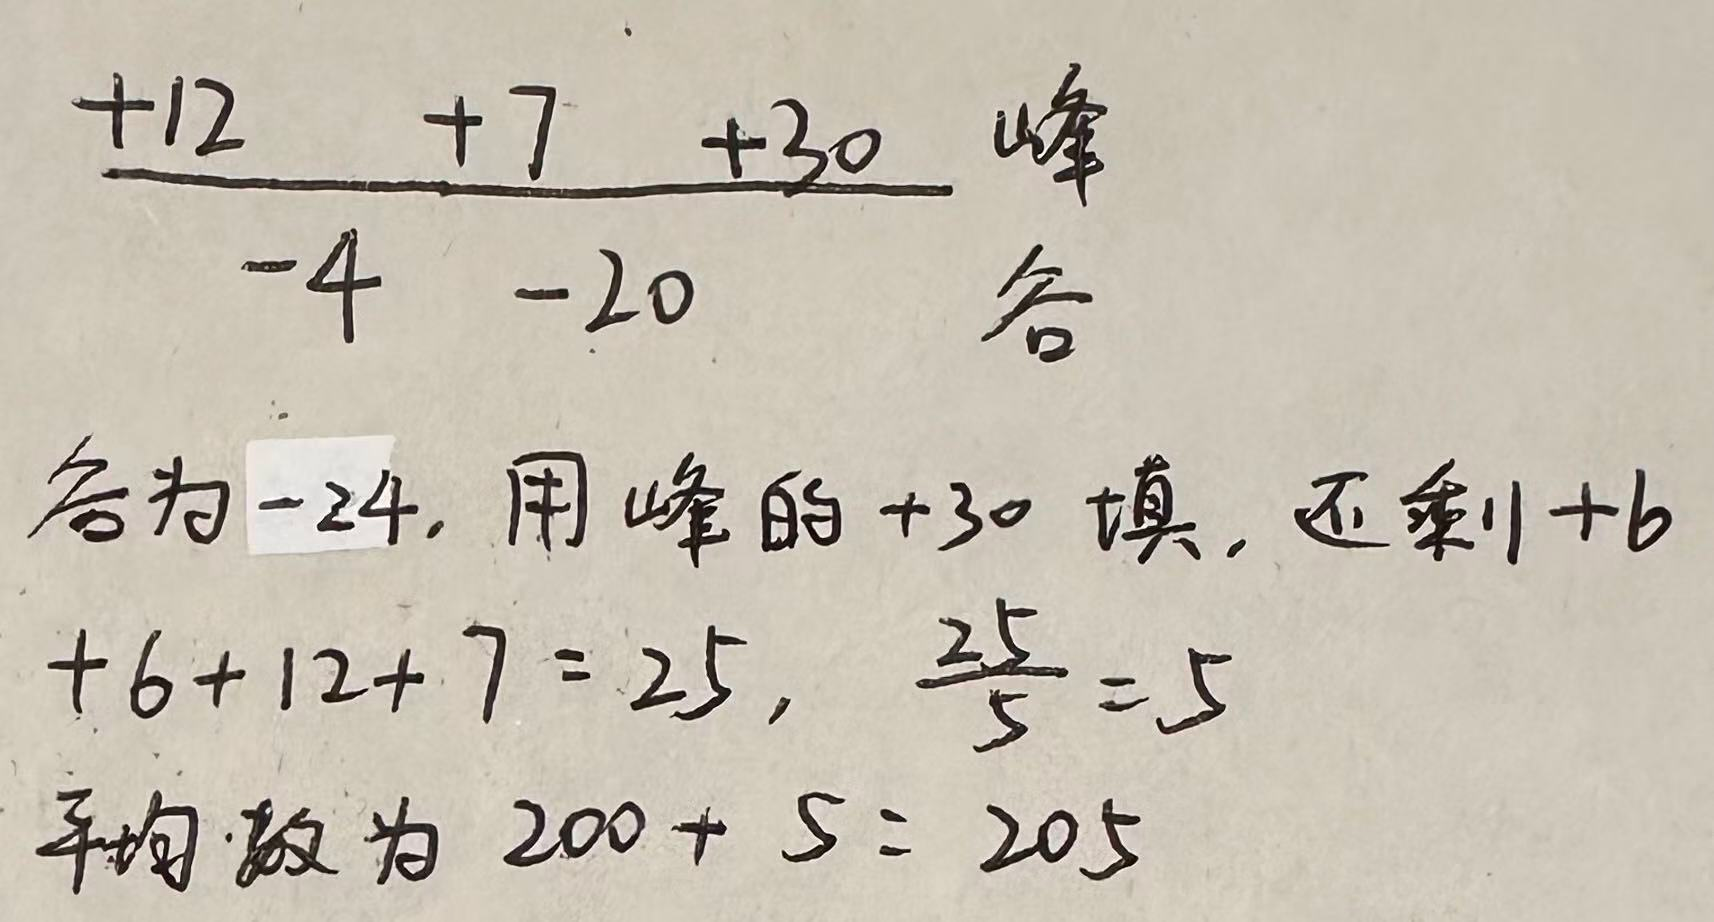 +12 +7 +30 峰
-4 -20 谷
谷为-24，用峰的+30填，还剩+6
+6+12+7=25， 25/5=5
平均数为 200+5=205